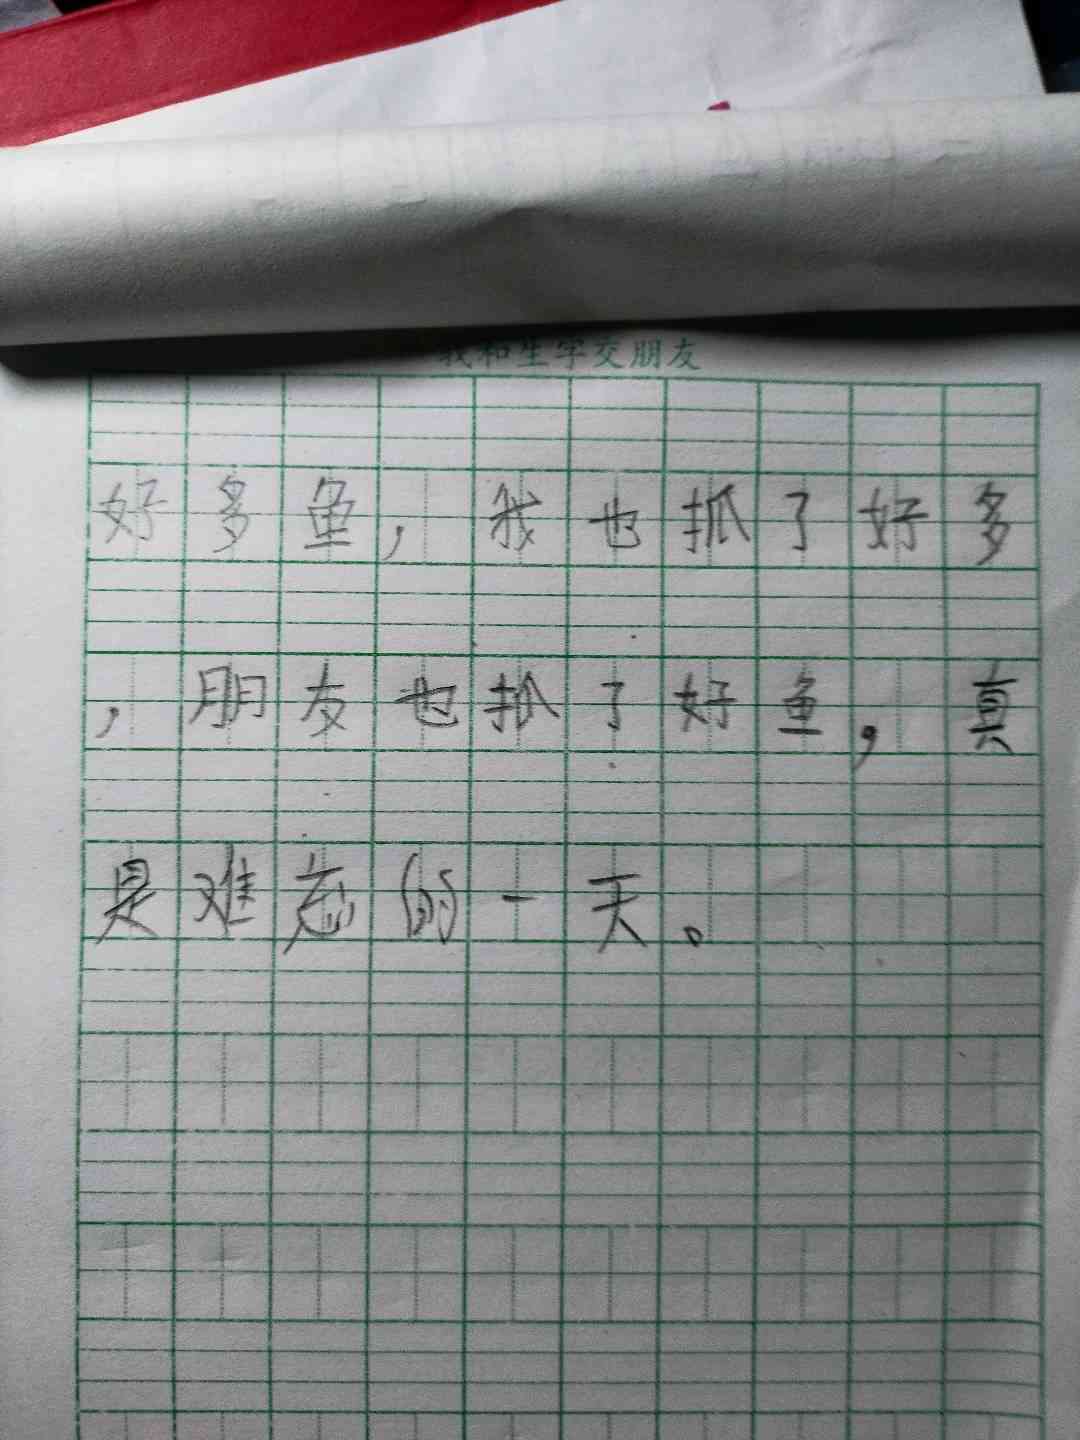 我和生字交朋友
好多鱼，我也抓了好多
，朋友也抓了好鱼，真
是难忘的一天。